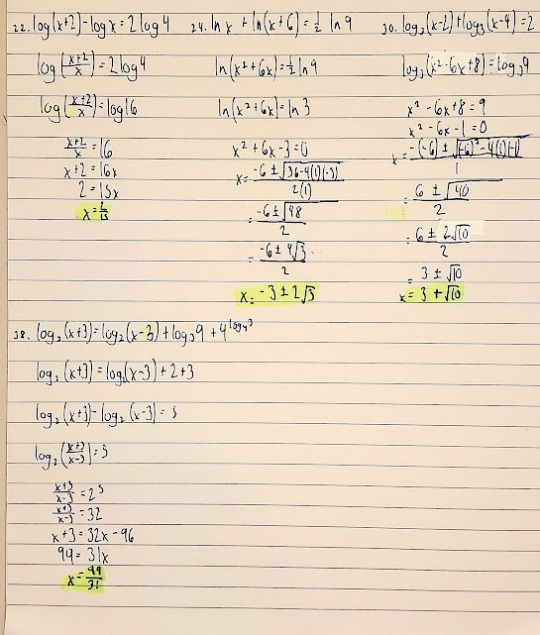 22. log(x+2) - log x = 2 log 4
log(x+2/x) = 2 log 4
log(x+2/x) = log 16
x+2/x = 16
x+2 = 16x
2 = 15x
x = 2/15
24. ln x + ln(x+6) = 1/2 ln 9
ln(x²+6x) = 1/2 ln 9
ln(x²+6x) = ln 3
x²+6x-3=0
x = -6 ± √36-4(1)(-3) / 2(1)
= -6 ± √48 / 2
= -6 ± 4√3 / 2
x = -3 ± 2√3
30. log₃(x-2) + log₃(x-4) = 2
log₃(x²-6x+8) = log₃9
x²-6x+8 = 9
x²-6x-1=0
x = -(-6) ± √(-6)²-4(1)(-1) / 1
= 6 ± √40 / 2
= 6 ± 2√10 / 2
= 3 ± √10
x = 3 + √10
38. log₂(x+3) = log₂(x-3) + log₃9 + 4^log₄3
log₂(x+3) = log₂(x-3) + 2 + 3
log₂(x+3) - log₂(x-3) = 5
log₂(x+3/x-3) = 5
x+3/x-3 = 2⁵
x+3/x-3 = 32
x+3 = 32x-96
99 = 31x
x = 99/31